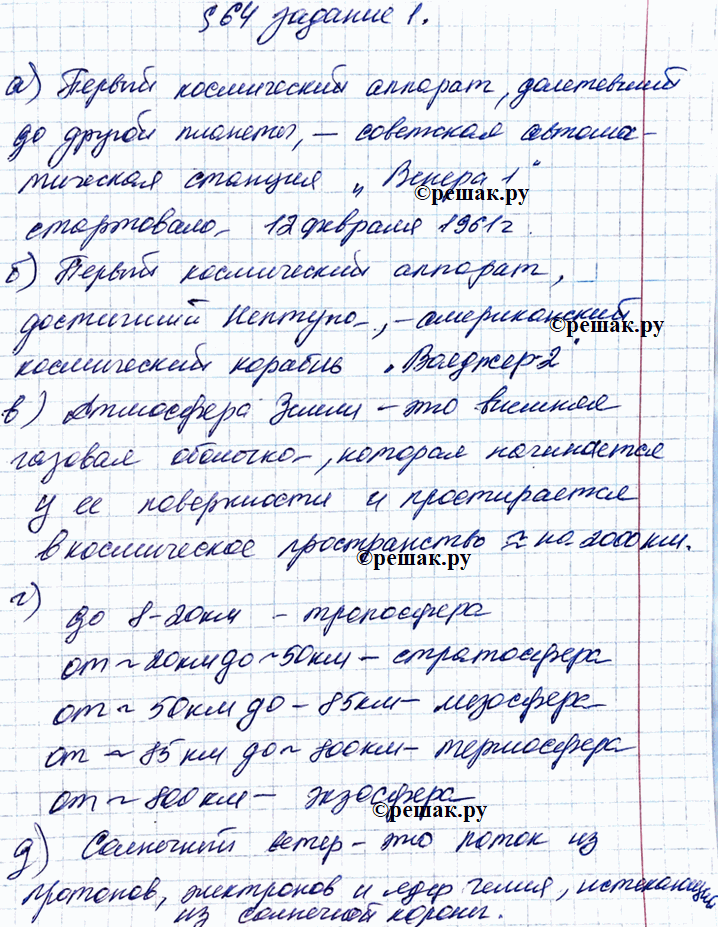 §64 задание 1.
а) Первый космический аппарат, долетевший
до другой планеты, – советская автома-
тическая станция „Венера 1"
©решак.ру
стартовала 12 февраля 1961г.
б) Первый космический аппарат,
достигший Нептуна, – американский
©решак.ру
космический корабль „Вояджер-2"
в) Атмосфера Земли – это внешняя
газовая оболочка, которая начинается
у ее поверхности и простирается
в космическое пространство ≈ на 2000 км.
©решак.ру
г) до 8-20км – тропосфера
от ~ 20км до ~ 50км – стратосфера
от ~ 50км до – 85км – мезосфера
от ~ 85 км до ~ 800км – термосфера
от ~ 800 км – экзосфера
©решак.ру
д) Солнечный ветер – это поток из
протонов, электронов и ядер гелия, истекающий
из солнечной короны.